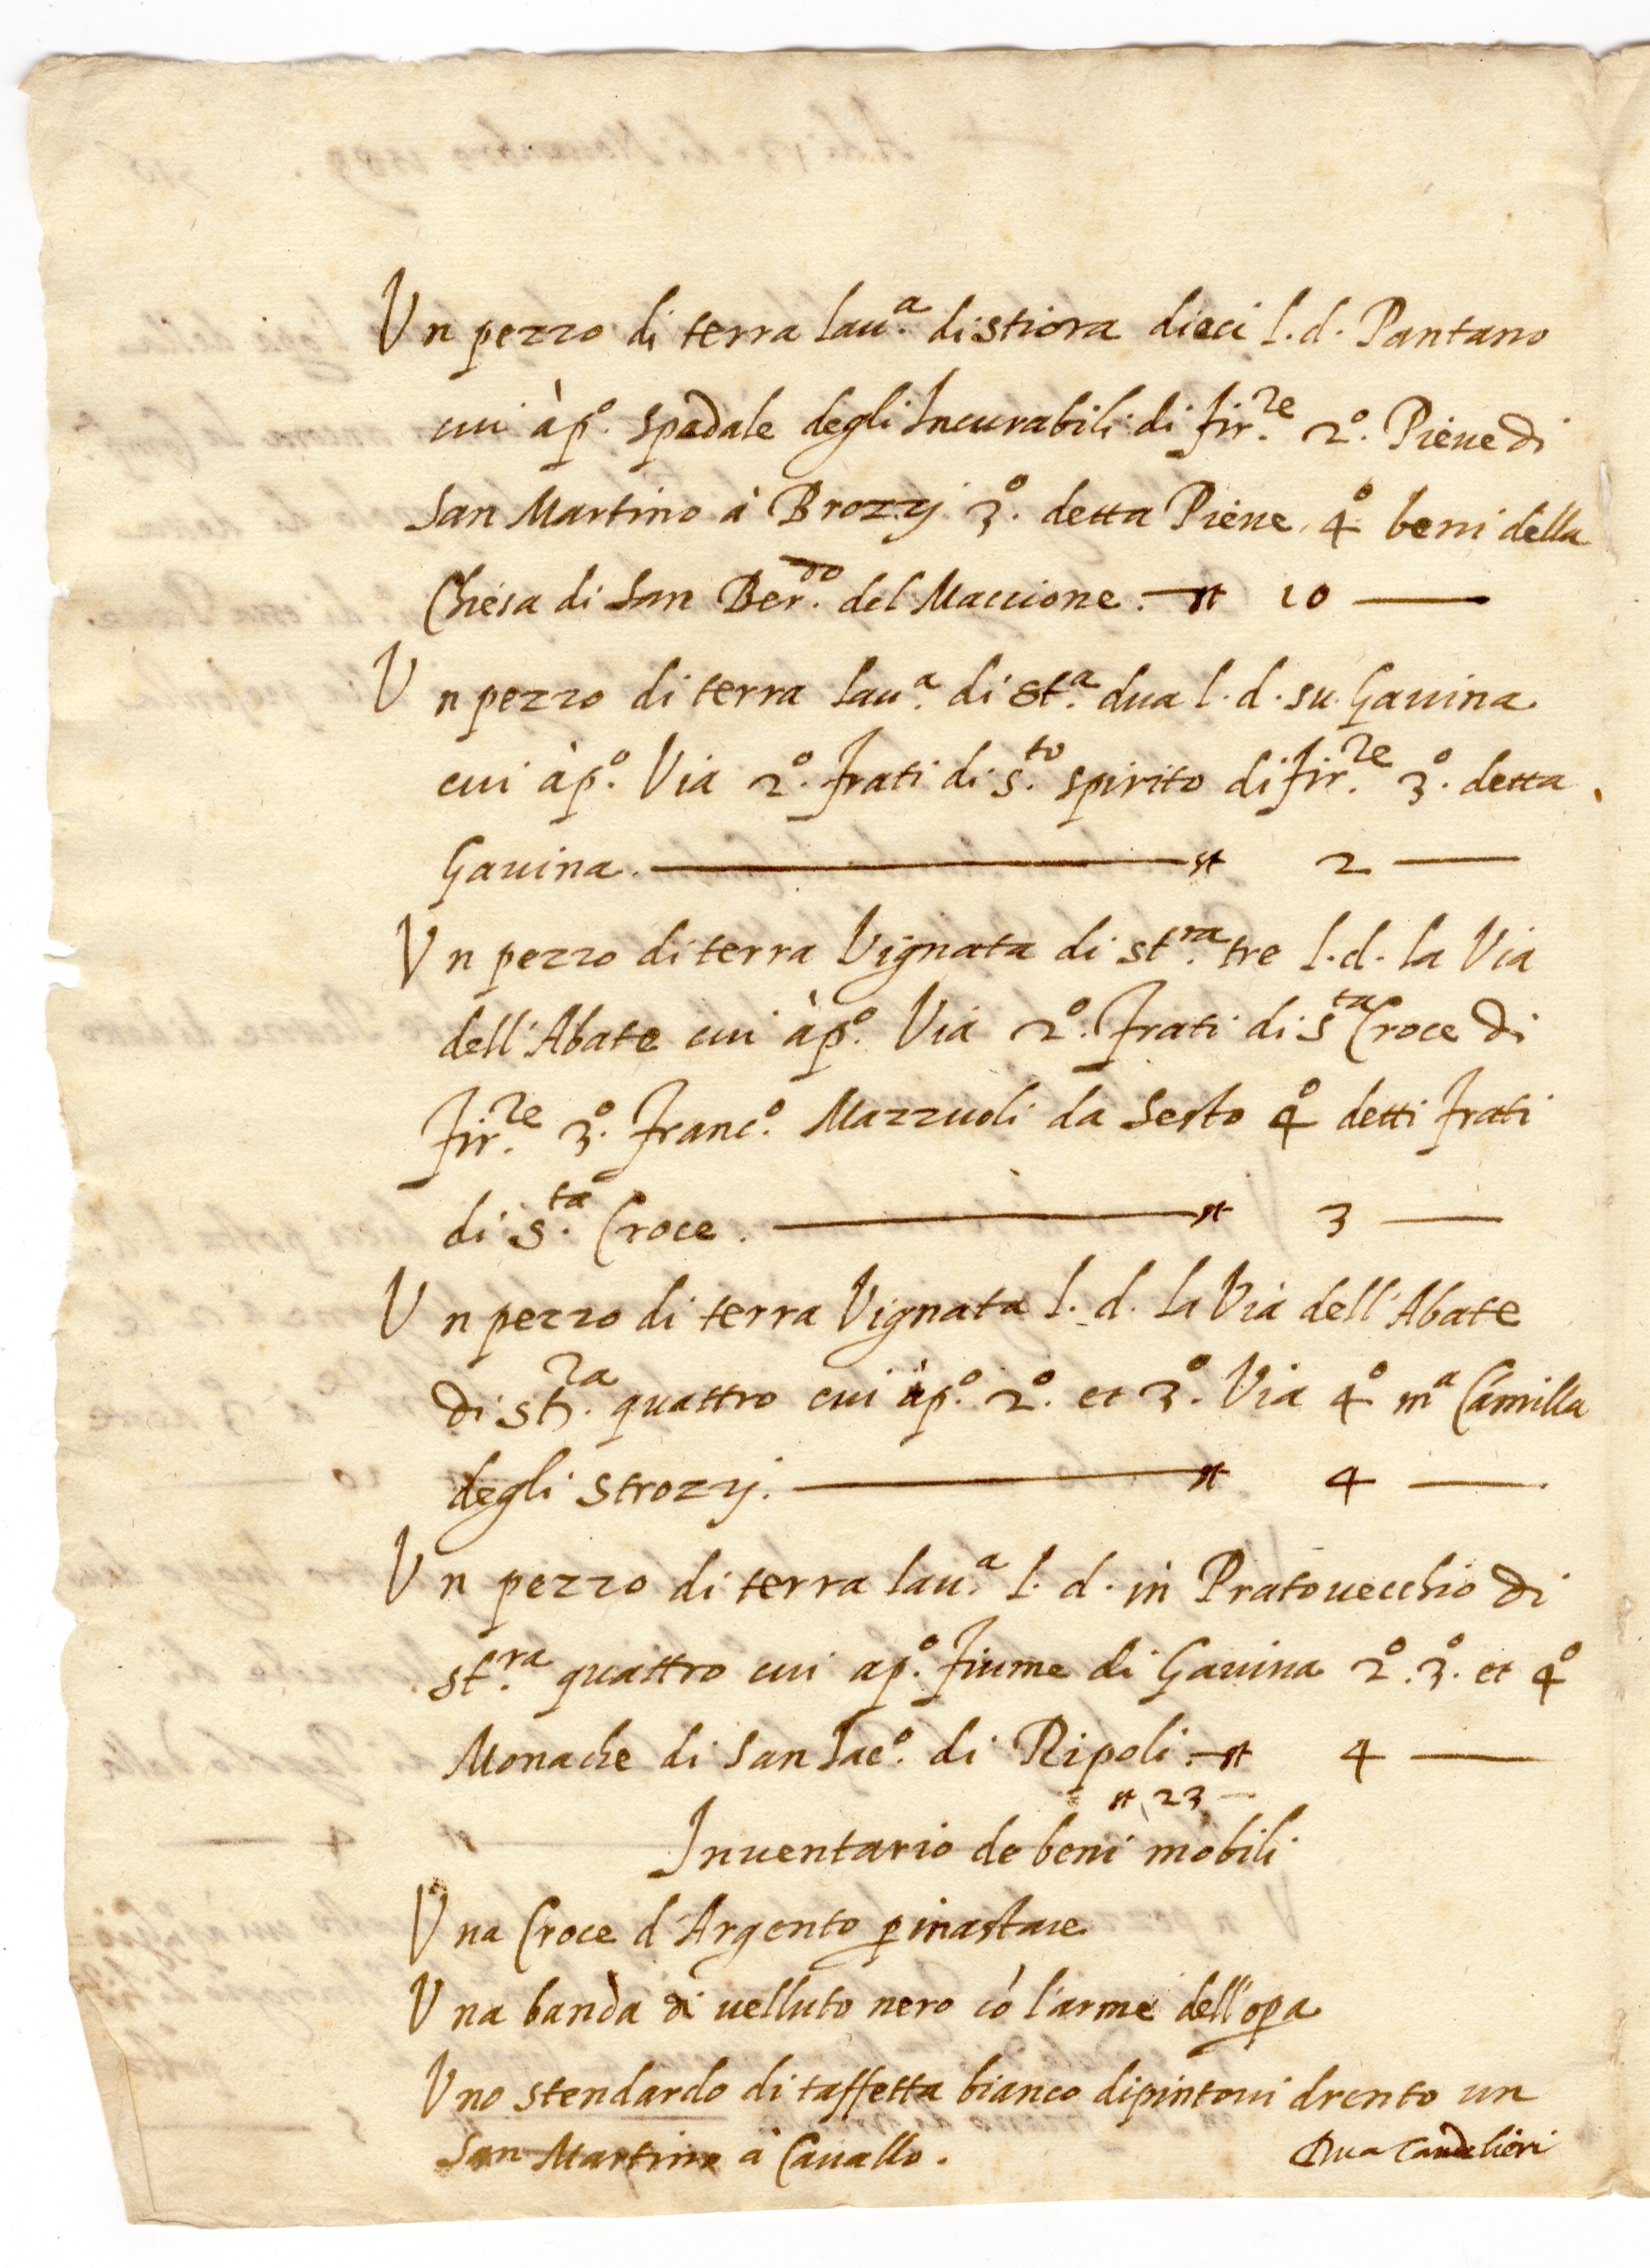 Un pezzo di terra lau.ᵃ di stiora dieci l. d. Pantano
cui à p.º spedale degli Incurabili di fir.ᶻᵉ 2.º Pieue di
San Martino à Brozzj 3.º detta Pieue 4º beni della
Chiesa di San Ber.ᵈᵒ del Maccione. — st 10 —
Un pezzo di terra lau.ᵃ di st.ᵃ dua l. d. su Gauina
cui à p.º Via 2.º frati di s.ᵗᵒ spirito di fir.ᶻᵉ 3.º detta
Gauina. — st 2 —
Un pezzo di terra Vignata di st.ʳᵃ tre l. d. la Via
dell'Abate cui à p.º Via 2.º frati di sᵗᵃ Croce di
fir.ᶻᵉ 3.º franc.º Mazzuoli da Sesto 4º detti frati
di s.ᵗᵃ Croce. — st 3 —
Un pezzo di terra Vignata l. d. la Via dell'Abate
di st.ʳᵃ quattro cui à p.º 2.º et 3.º Via 4º mᵃ Camilla
degli strozzj. — st 4 —
Un pezzo di terra lau.ᵃ l. d. in Pratouecchio di
st.ʳᵃ quattro cui a p.º fiume di Gauina 2.º 3.º et 4º
Monache di San Iac.º di Ripoli. — st 4 —
st 23 —
Inuentario de beni mobili
Una Croce d Argento p inastare
Una banda di uelluto nero cò l'arme dell'opa
Uno stendardo di taffetta bianco dipintoui drento un
San Martino à Cauallo.
Dua Candelieri